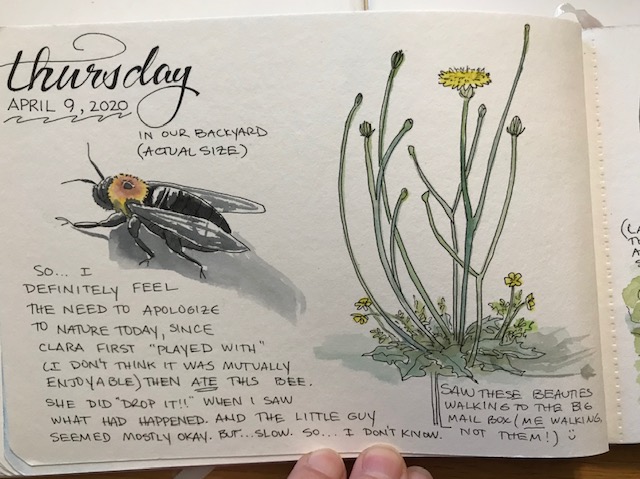 thursday
APRIL 9, 2020
IN OUR BACKYARD
(ACTUAL SIZE)
SO... I
DEFINITELY FEEL
THE NEED TO APOLOGIZE
TO NATURE TODAY, SINCE
CLARA FIRST "PLAYED WITH"
(I DON'T THINK IT WAS MUTUALLY
ENJOYABLE) THEN ATE THIS BEE.
SHE DID "DROP IT!!" WHEN I SAW
WHAT HAD HAPPENED. AND THE LITTLE GUY
SEEMED MOSTLY OKAY. BUT...SLOW. SO... I DON'T KNOW.
SAW THESE BEAUTIES
WALKING TO THE BIG
MAIL BOX (ME WALKING,
NOT THEM!)